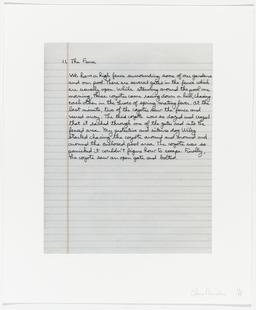 11. The Fence
We have a high fence surrounding some of our gardens
and our pool. There are several gates in the fence which
are usually open. While standing around the pool one
morning, three coyotes came racing down a hill, chasing
each other in the throes of spring mating fever. At the
last minute, two of the coyotes saw the fence and
veered away. The third coyote was so dazed and crazed
that it rushed through one of the gates and into the
fenced area. My protective and intense dog
started chasing the coyote around and around and
around the enclosed pool area. The coyote was so
panicked it couldn't figure how to escape. Finally,
the coyote saw an open gate and bolted.